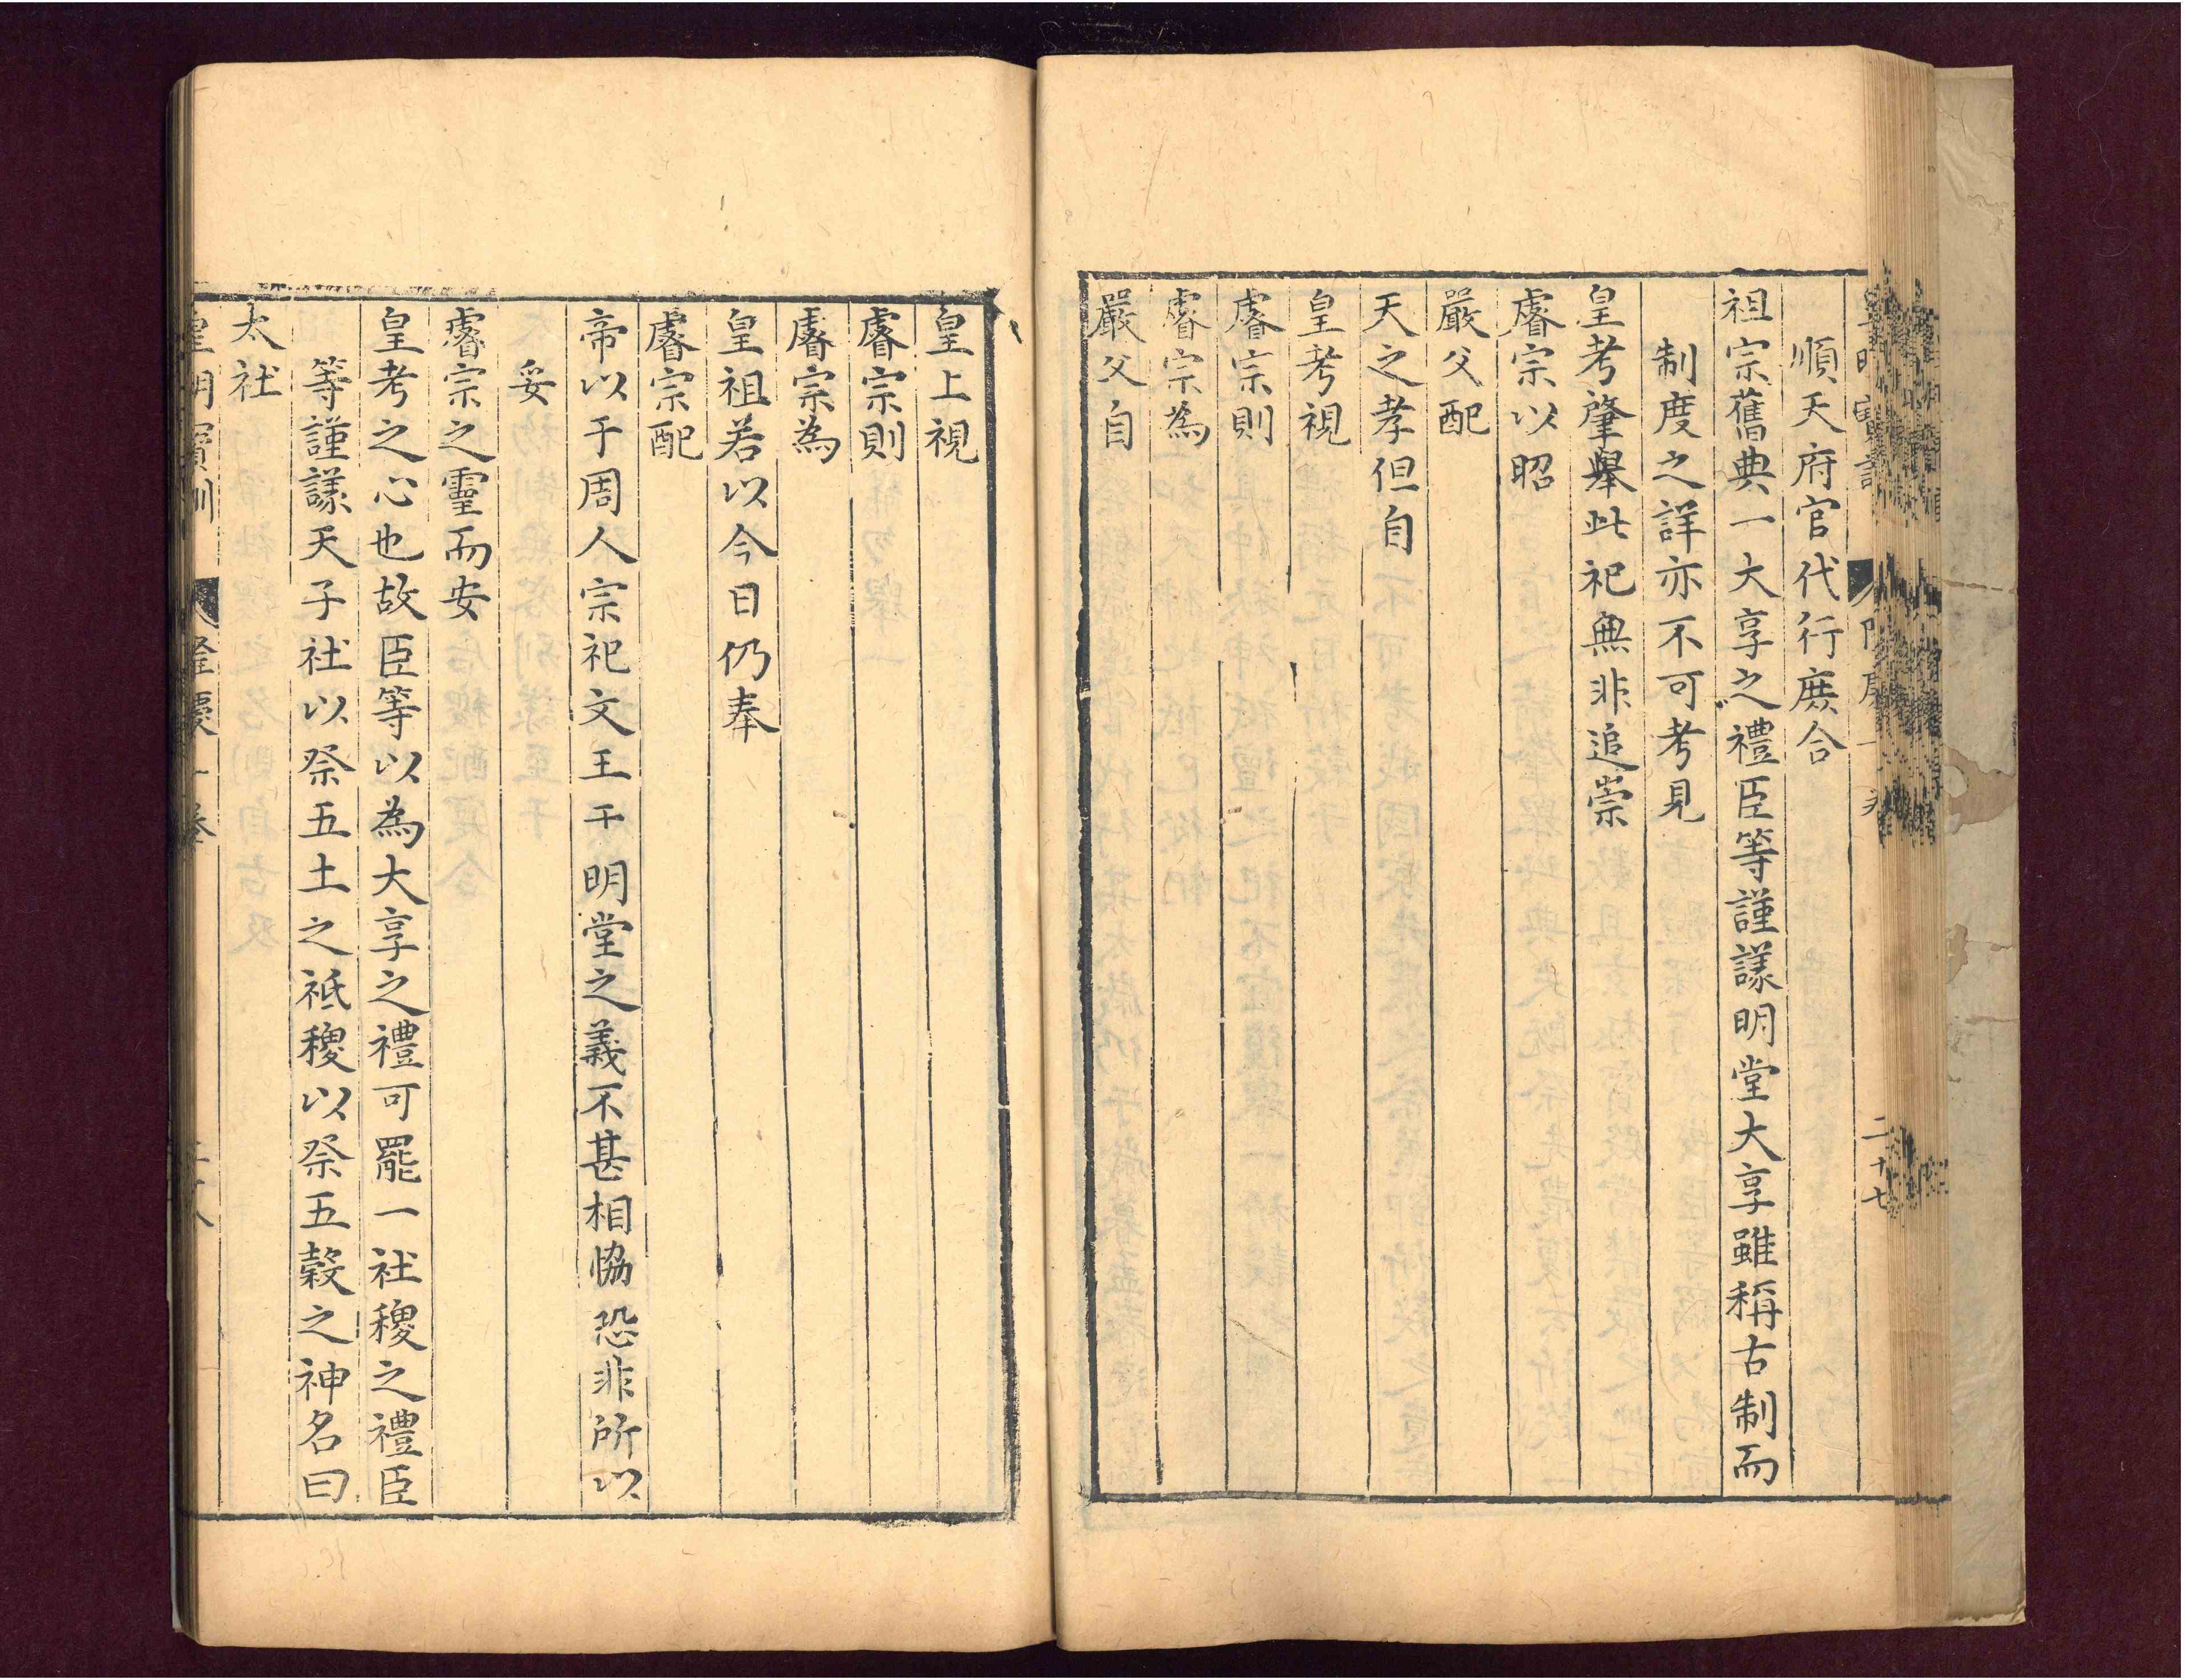 順天府官代行庶合
祖宗舊典一大享之禮臣等謹議明堂大享雖稱古制而
制度之詳亦不可考見
皇考肇舉此祀無非追崇
睿宗以昭
嚴父配
天之孝但自
皇考視
睿宗則
睿宗為
嚴父自
皇上視
睿宗則
睿宗為
皇祖若以今日仍奉
睿宗配
帝以于周人宗祀文王于明堂之義不甚相恊恐非所以
妥
睿宗之靈而安
皇考之心也故臣等以為大享之禮可罷一社稷之禮臣
等謹議天子社以祭五土之祗稷以祭五榖之神名曰
太社
皇明寶訓 隆慶一卷